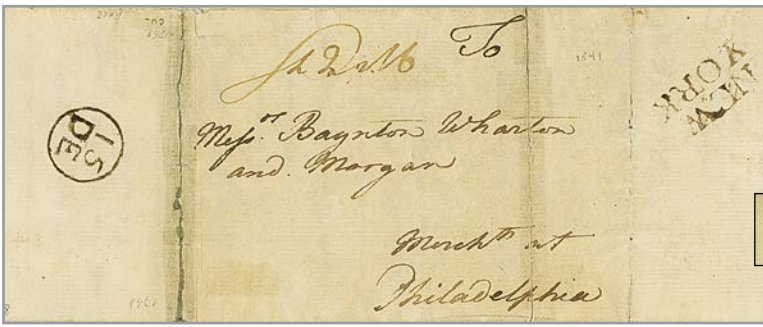 To
Messrs. Baynton Wharton
and. Morgan
Merchts at
Philadelphia
NEW
YORK
15
DE
1841